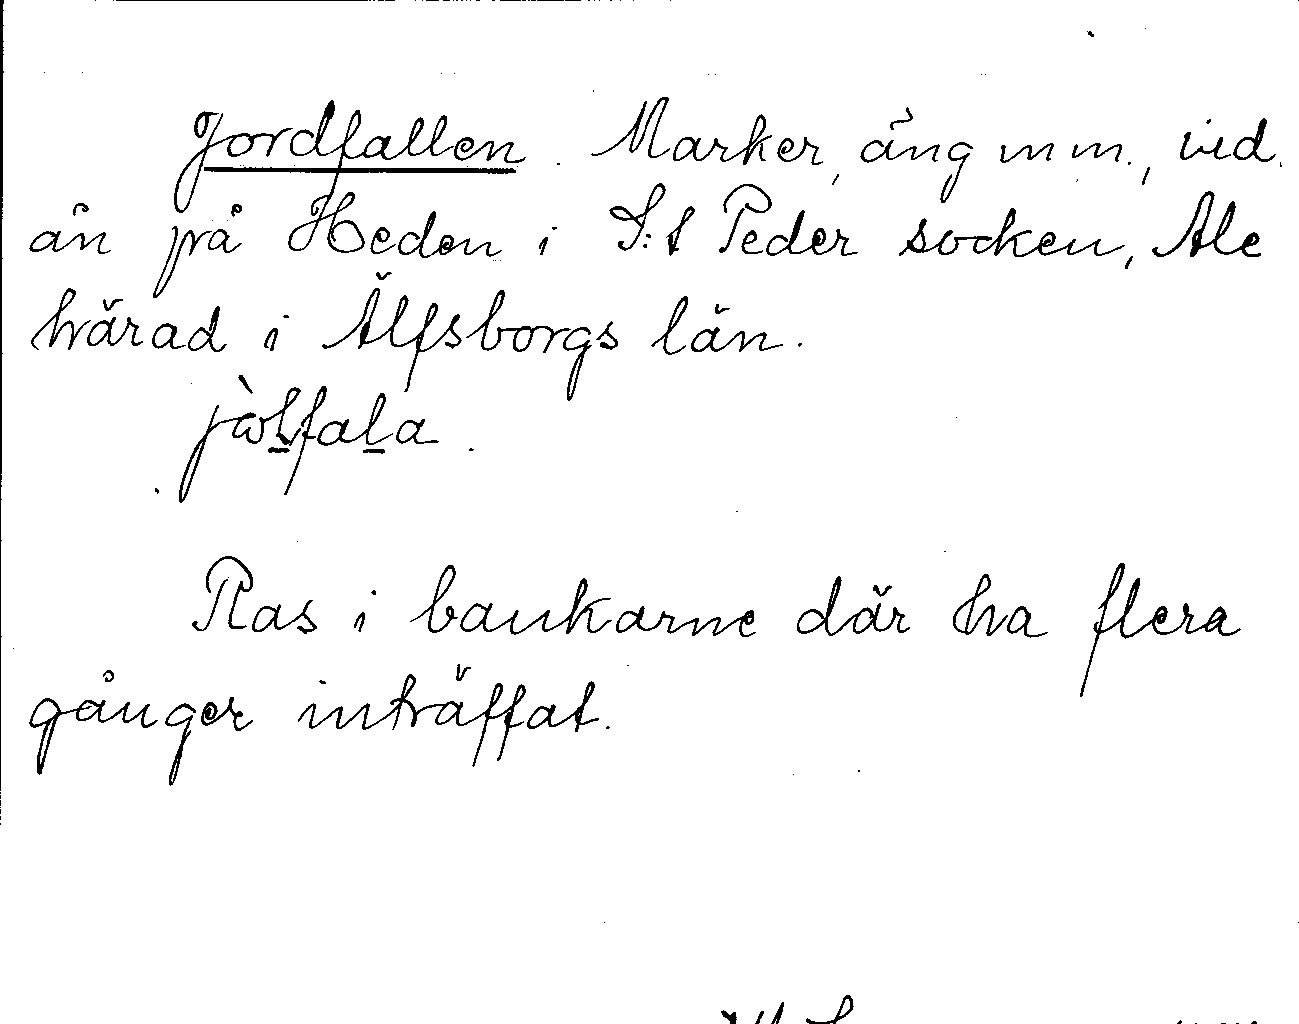 Jordfallen. Marker, äng m m., vid
ån på Heden i S:t Peder socken, Ale
härad i Älfsborgs län.
jòļfaļa.
Ras i bankarne där ha flera
gånger inträffat.